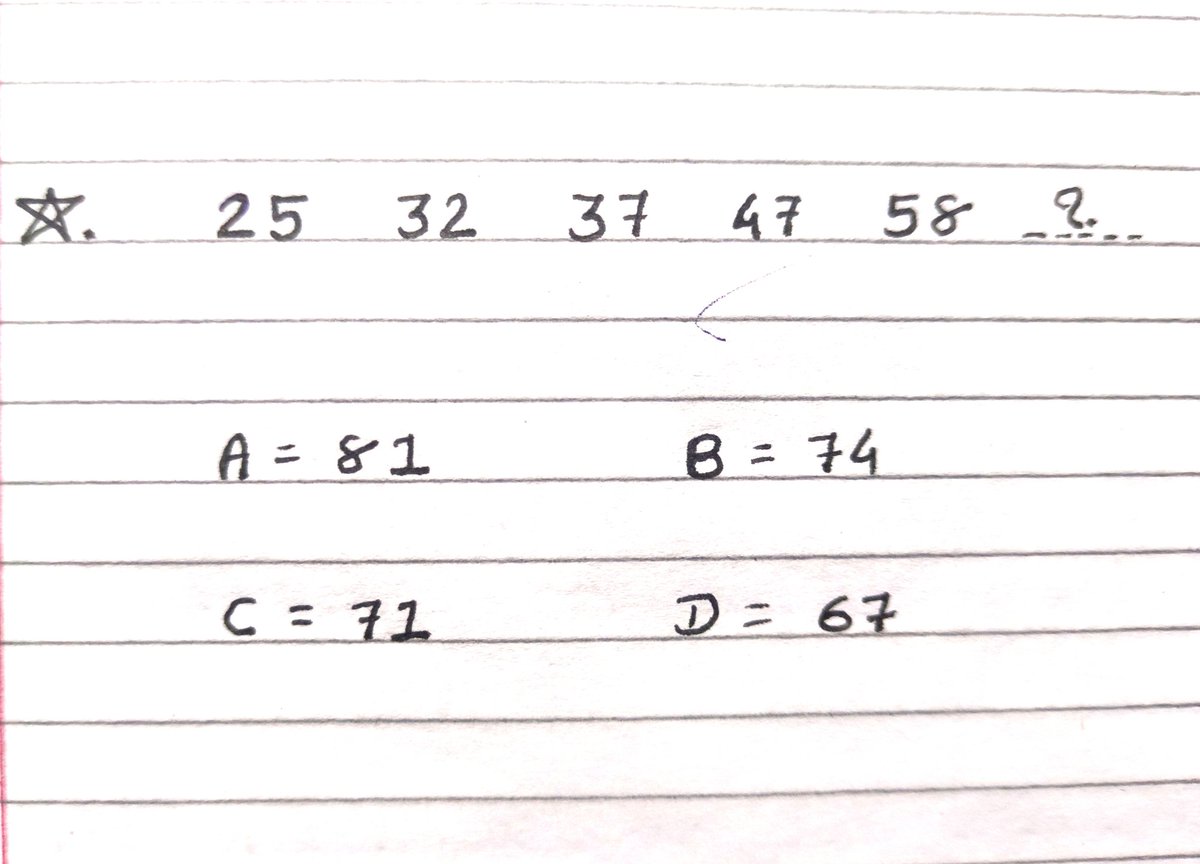 ☆. 25 32 37 47 58 ?
A = 81 B = 74
C = 71 D = 67